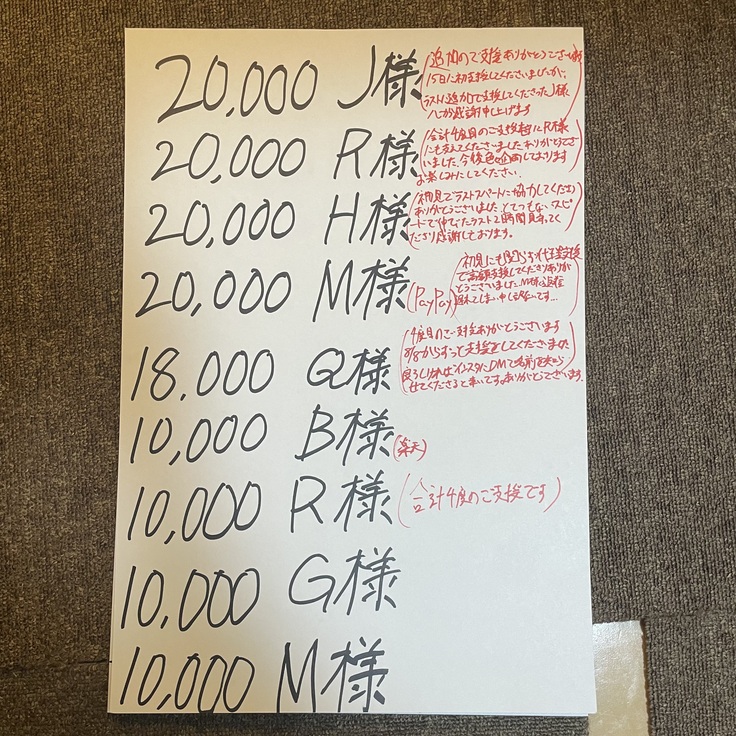 20,000 J様
(追加のご支援ありがとうございます
15日に初支援してくださいましたが、
ラスト追加で支援してくださったJ様
心から感謝申し上げます
20,000 R様
(合計4度目のご支援 R様
にも支えてくださいました、ありがとうござ
いました、今後色々企画しております
お楽しみにしてください、
20,000 H様
(初見でラストスパートに協力してくださり
ありがとうございました、とてつもないスピ
ードで伸びたラスト2時間
感謝しております。
20,000 M様 (PayPay)
初見にも関わらず
で高額支援してくださりありが
とうございました、M様
遅れてしまい申し訳ないです…
18,000 Q様
(4度目のご支援ありがとうございます
8/8からずっと支援をしてくださいました
良ろしければインスタにDMで名前を
せてくださると幸いです。ありがとうございます。
10,000 B様 (楽天)
10,000 R様 (合計4度のご支援です)
10,000 G様
10,000 M様